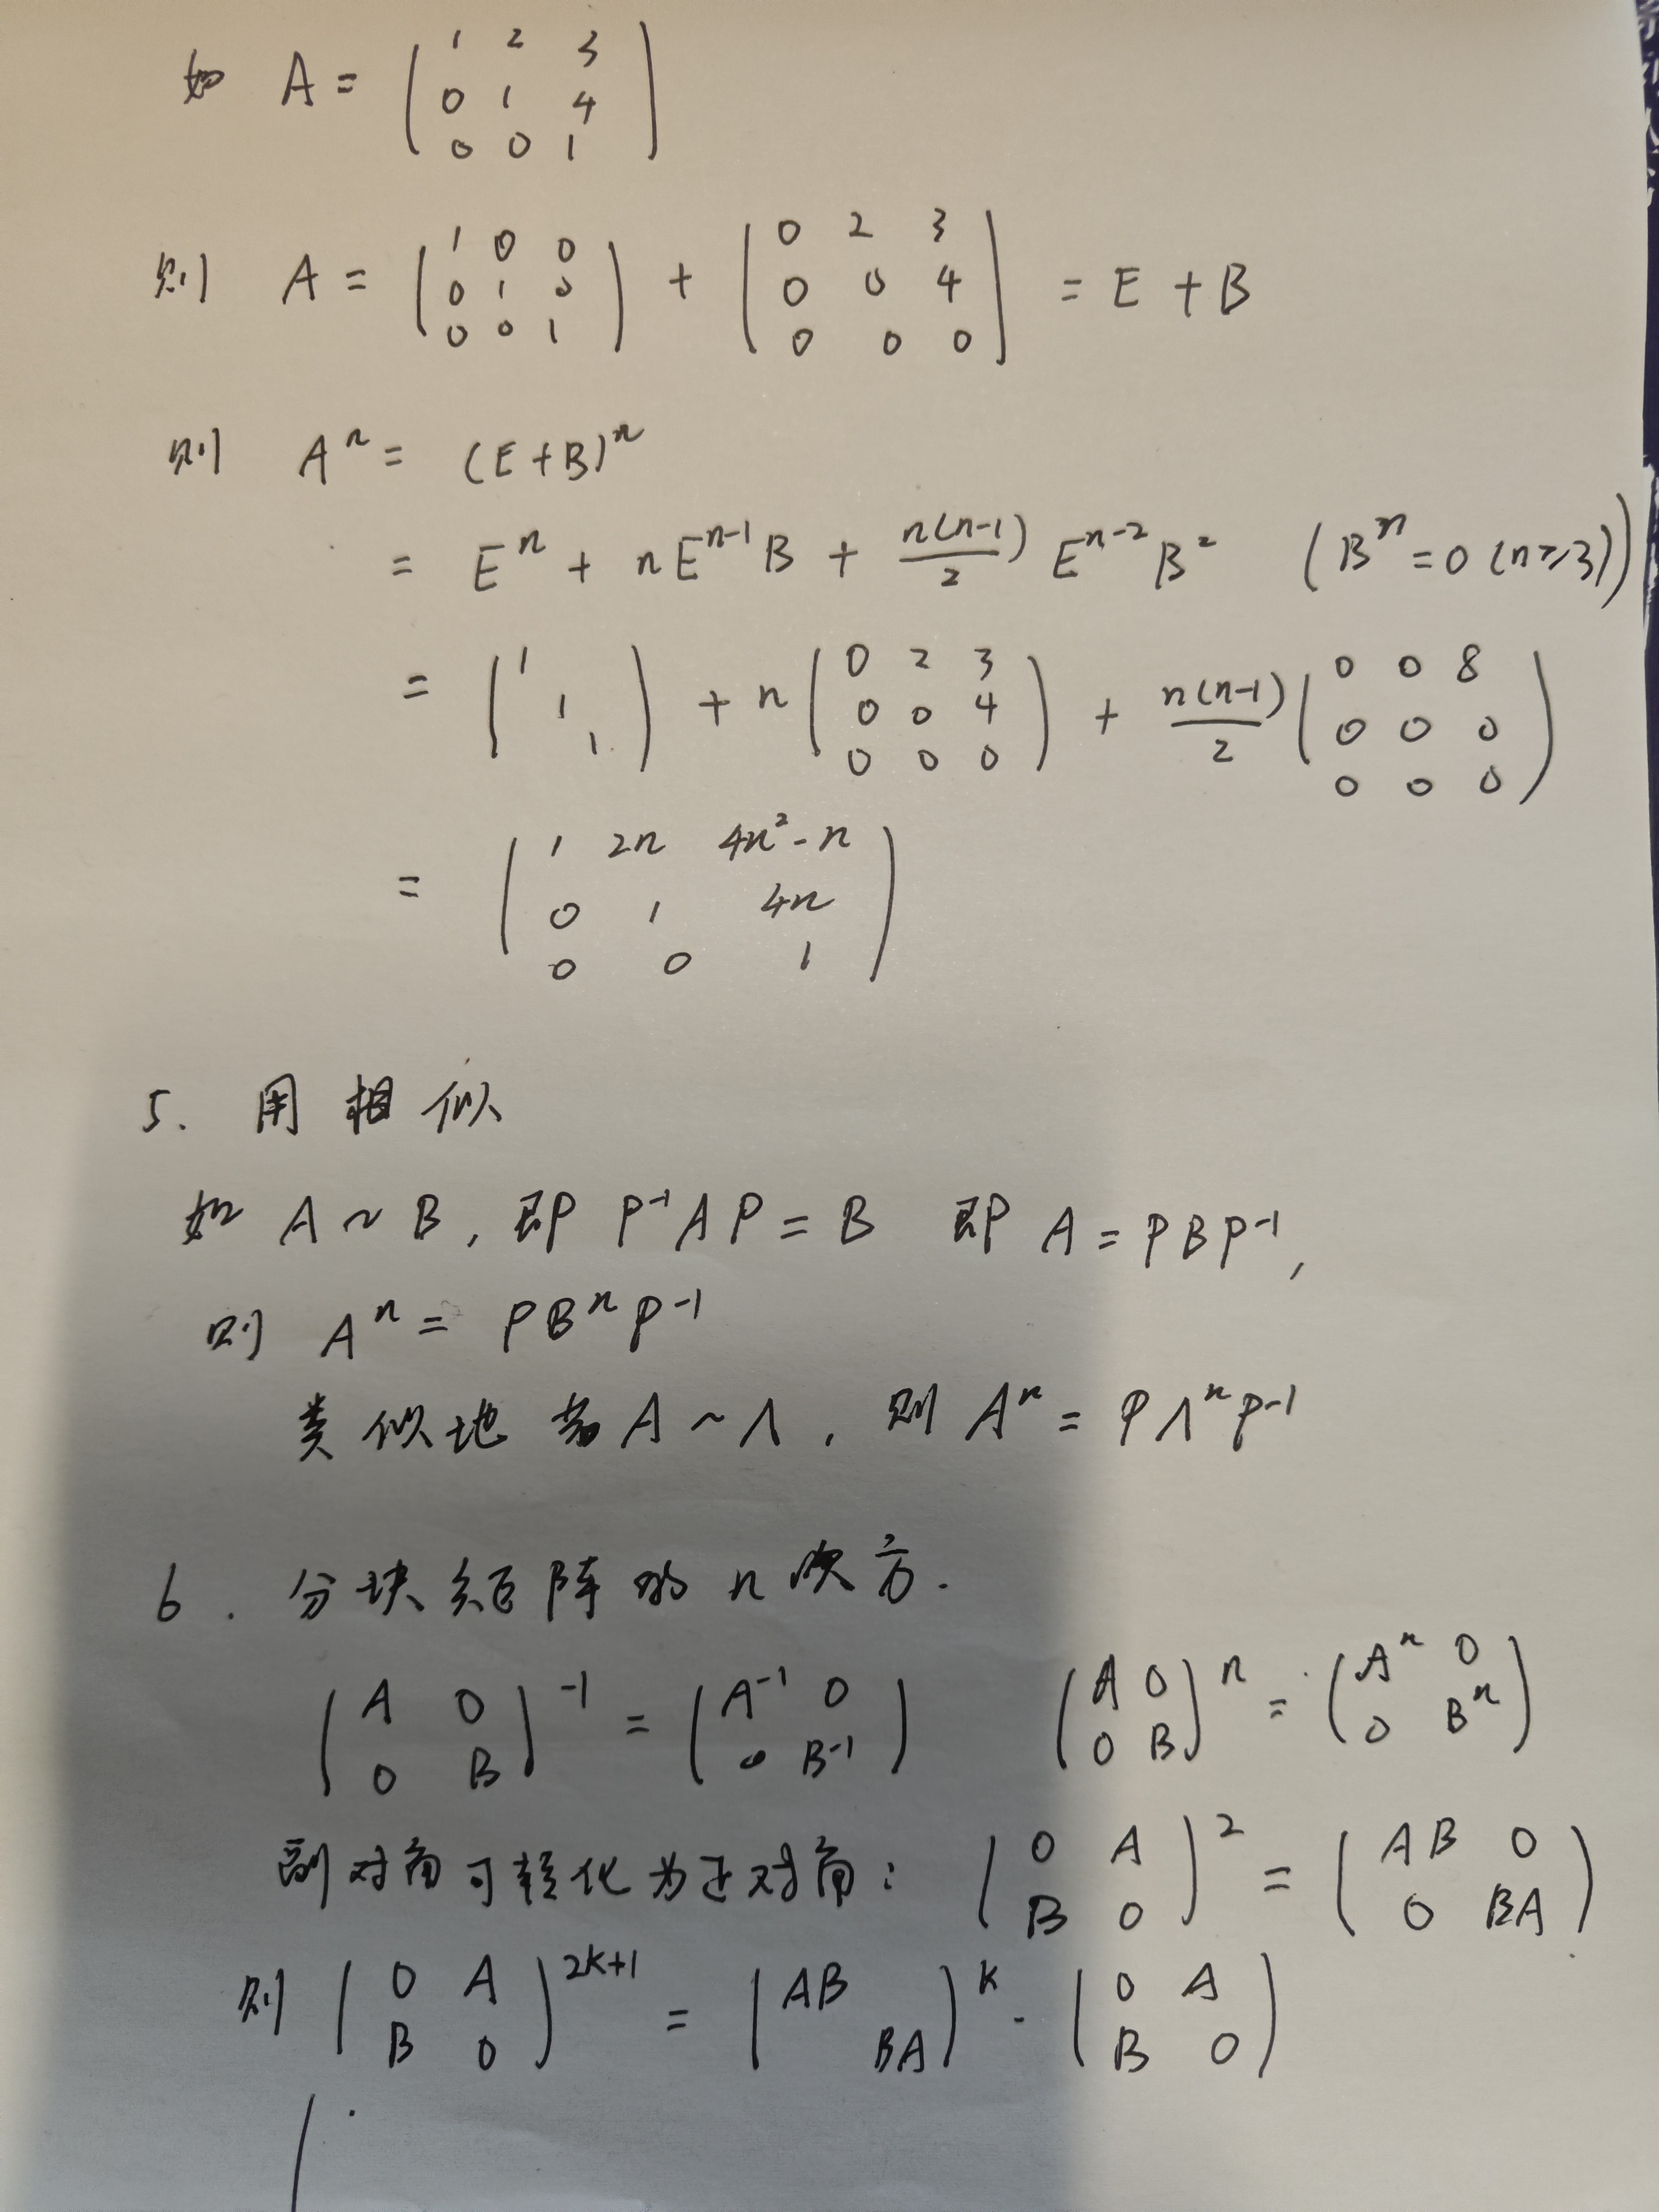 如 A = ( 1 2 3
0 1 4
0 0 1 )
则 A = ( 1 0 0
0 1 0
0 0 1 ) + ( 0 2 3
0 0 4
0 0 0 ) = E + B
则 Aⁿ = (E+B)ⁿ
= Eⁿ + nEⁿ⁻¹B + n(n-1)/2 Eⁿ⁻²B² (Bⁿ = 0 (n≥3))
= ( 1
1
1 ) + n ( 0 2 3
0 0 4
0 0 0 ) + n(n-1)/2 ( 0 0 8
0 0 0
0 0 0 )
= ( 1 2n 4n²-n
0 1 4n
0 0 1 )
5. 用相似
如 A ~ B, 即 P⁻¹AP = B 即 A = PBP⁻¹,
则 Aⁿ = PBⁿP⁻¹
类似地 若 A ~ Λ, 则 Aⁿ = PΛⁿP⁻¹
6. 分块矩阵的 n 次方.
( A 0
0 B )⁻¹ = ( A⁻¹ 0
0 B⁻¹ ) ( A 0
0 B )ⁿ = ( Aⁿ 0
0 Bⁿ )
副对角可转化为正对角: ( 0 A
B 0 )² = ( AB 0
0 BA )
则 ( 0 A
B 0 )²ᵏ⁺¹ = ( AB
BA )ᵏ · ( 0 A
B 0 )